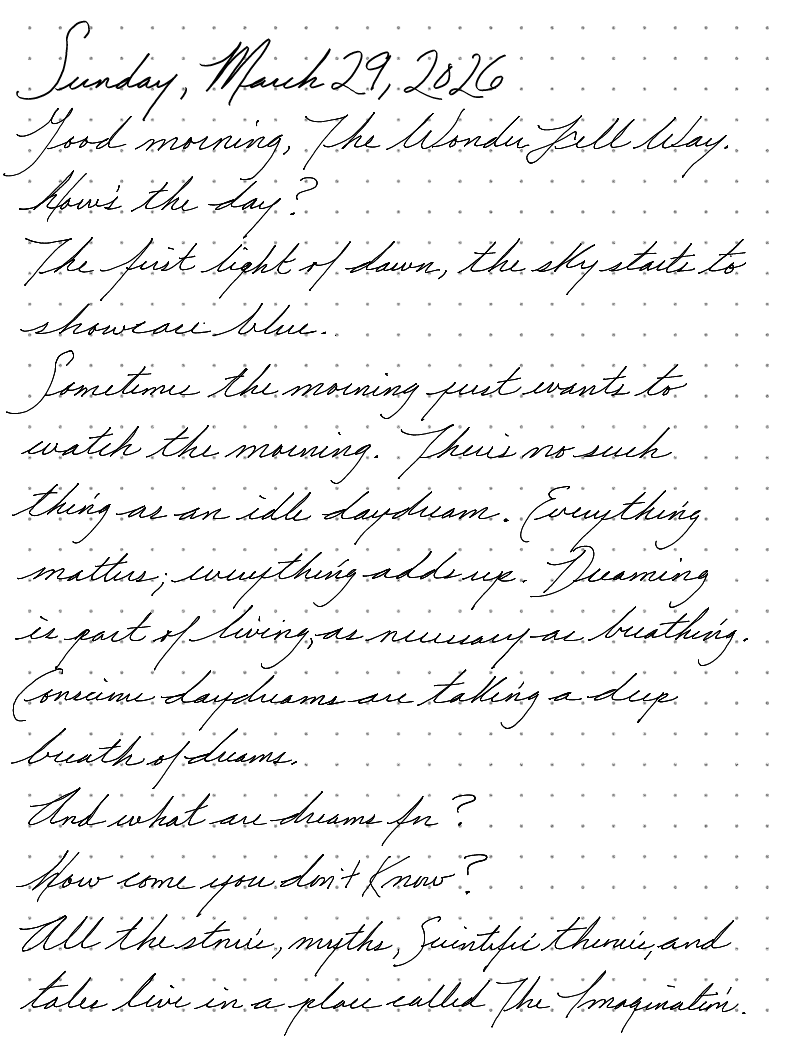 Sunday, March 29, 2026
Good morning, The Wonder Jell Way.
How's the day?
The first light of dawn, the sky starts to
showcase blue.
Sometimes the morning just wants to
watch the morning. There's no such
thing as an idle daydream. Everything
matters; everything adds up. Dreaming
is part of living, as necessary as breathing.
Conscious daydreams are taking a deep
breath of dreams.
And what are dreams for?
How come you don't know?
All the stories, myths, Scientific theories, and
tales live in a place called The Imagination.